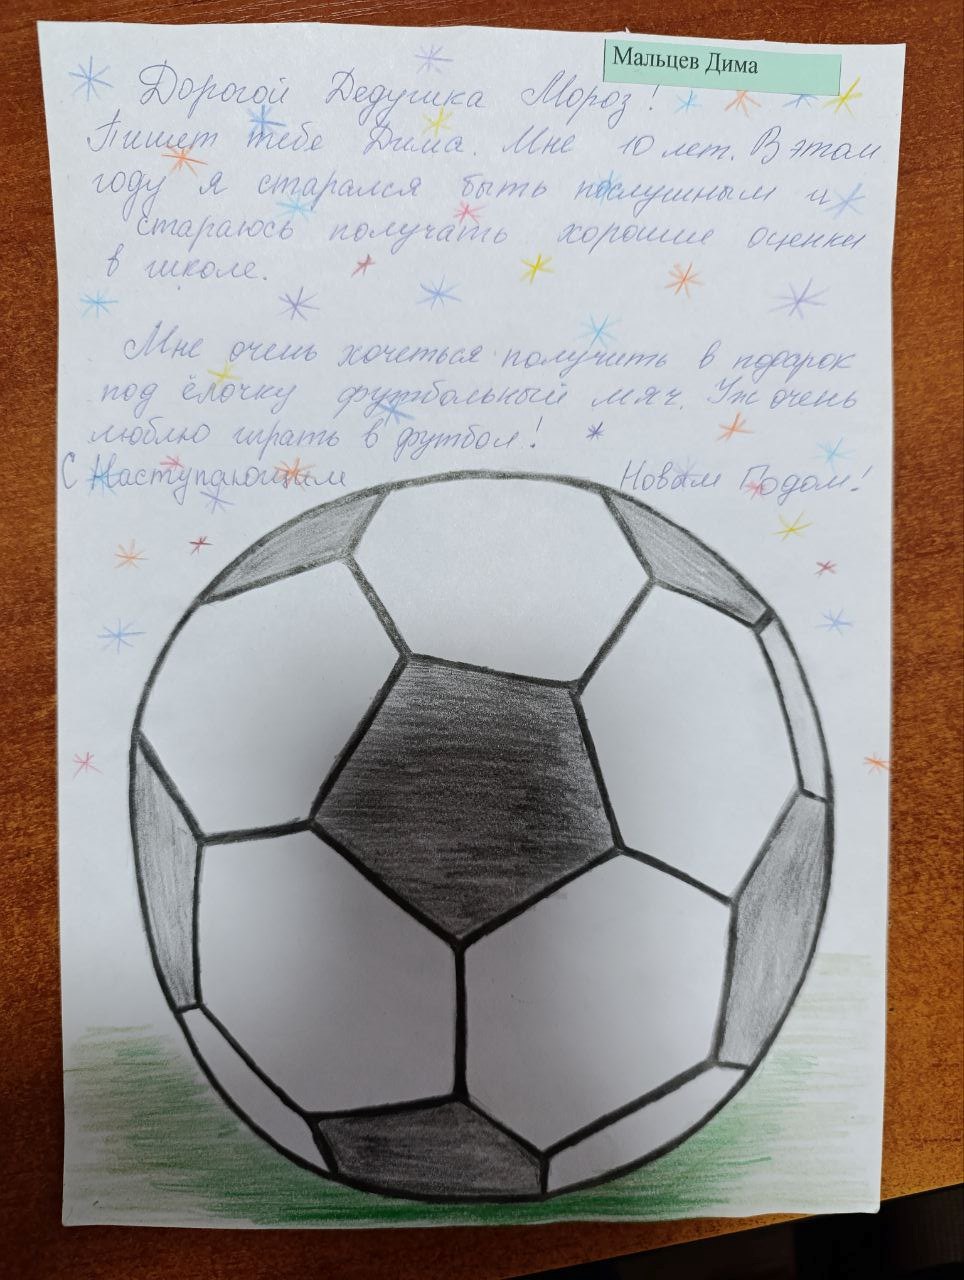 Мальцев Дима
Дорогой Дедушка Мороз!
Пишет тебе Дима. Мне 10 лет. В этом
году я старался быть послушным и
стараюсь получать хорошие оценки
в школе.
Мне очень хочеться получить в подарок
под ёлочку футбольный мяч. Уж очень
люблю играть в футбол!
С Наступающим Новым Годом!